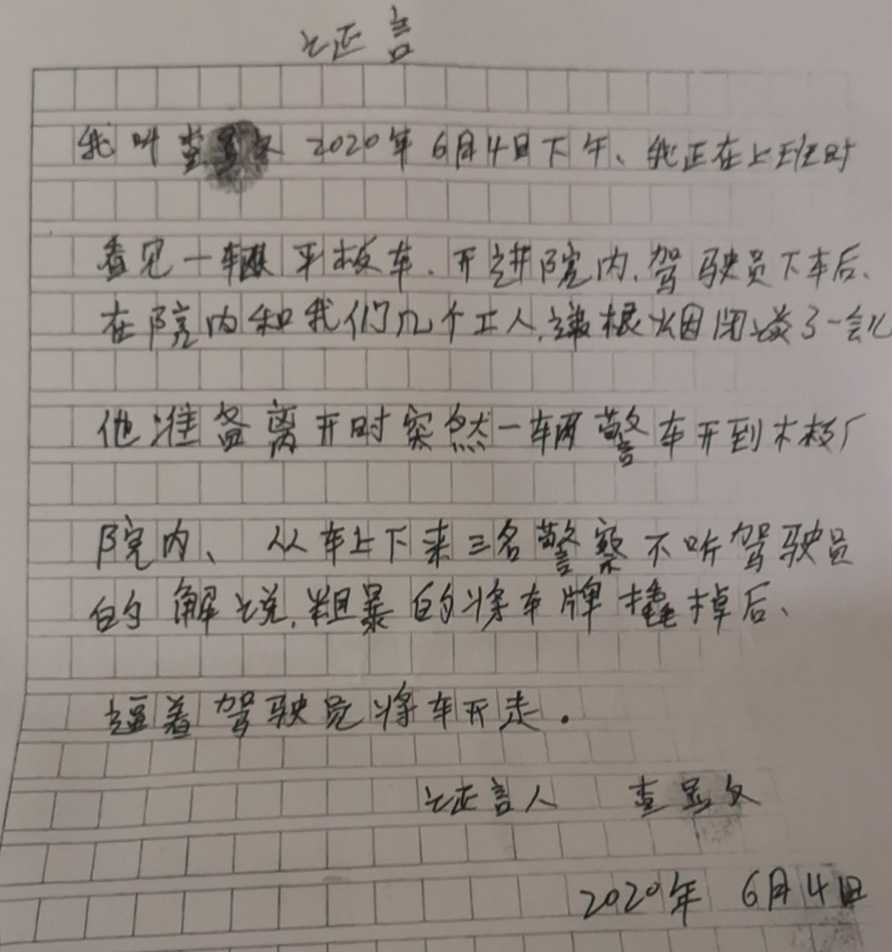 证言
我叫查显文 2020年6月4日下午、我正在上班时
看见一辆平板车.开进院内.驾驶员下车后.
在院内和我们几个工人.递根烟闲谈了一会儿
他准备离开时突然一辆警车开到木板厂
院内、从车上下来三名警察不听驾驶员
的解说.粗暴的将车牌撬掉后、
逼着驾驶员将车开走.
证言人 查显文
2020年 6月4日